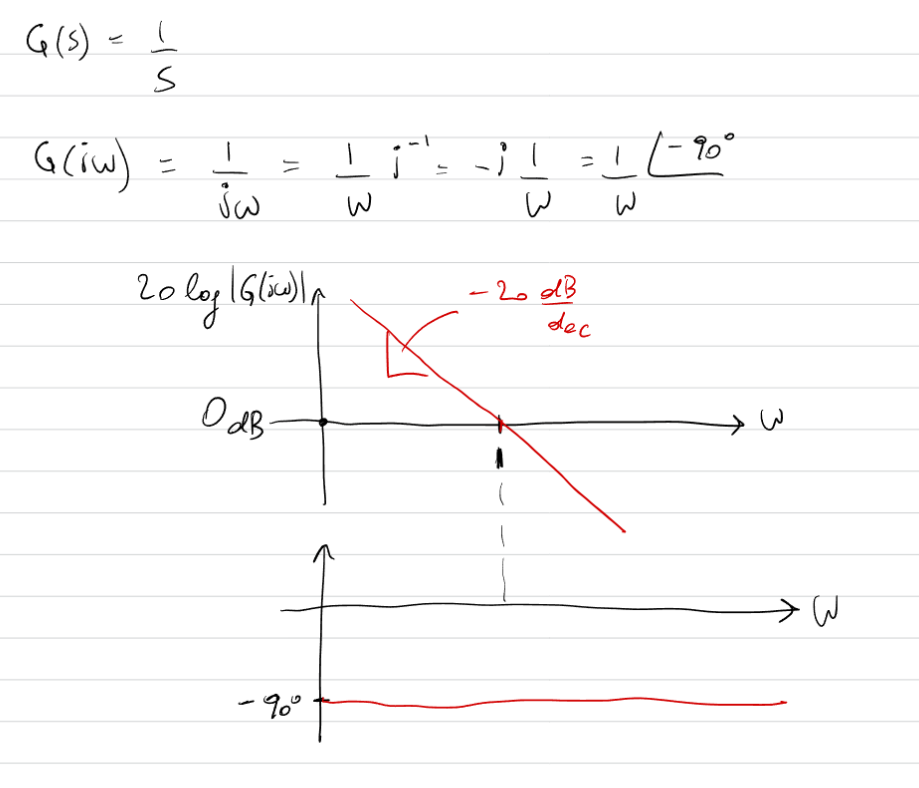 G(s) = 1/s
G(iω) = 1/jω = 1/ω j⁻¹ = -j 1/ω = 1/ω ∠-90°
20 log |G(iω)|
-20 dB/dec
0dB
ω
ω
-90°